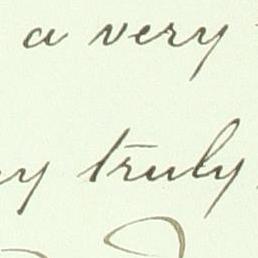 a very
y truly